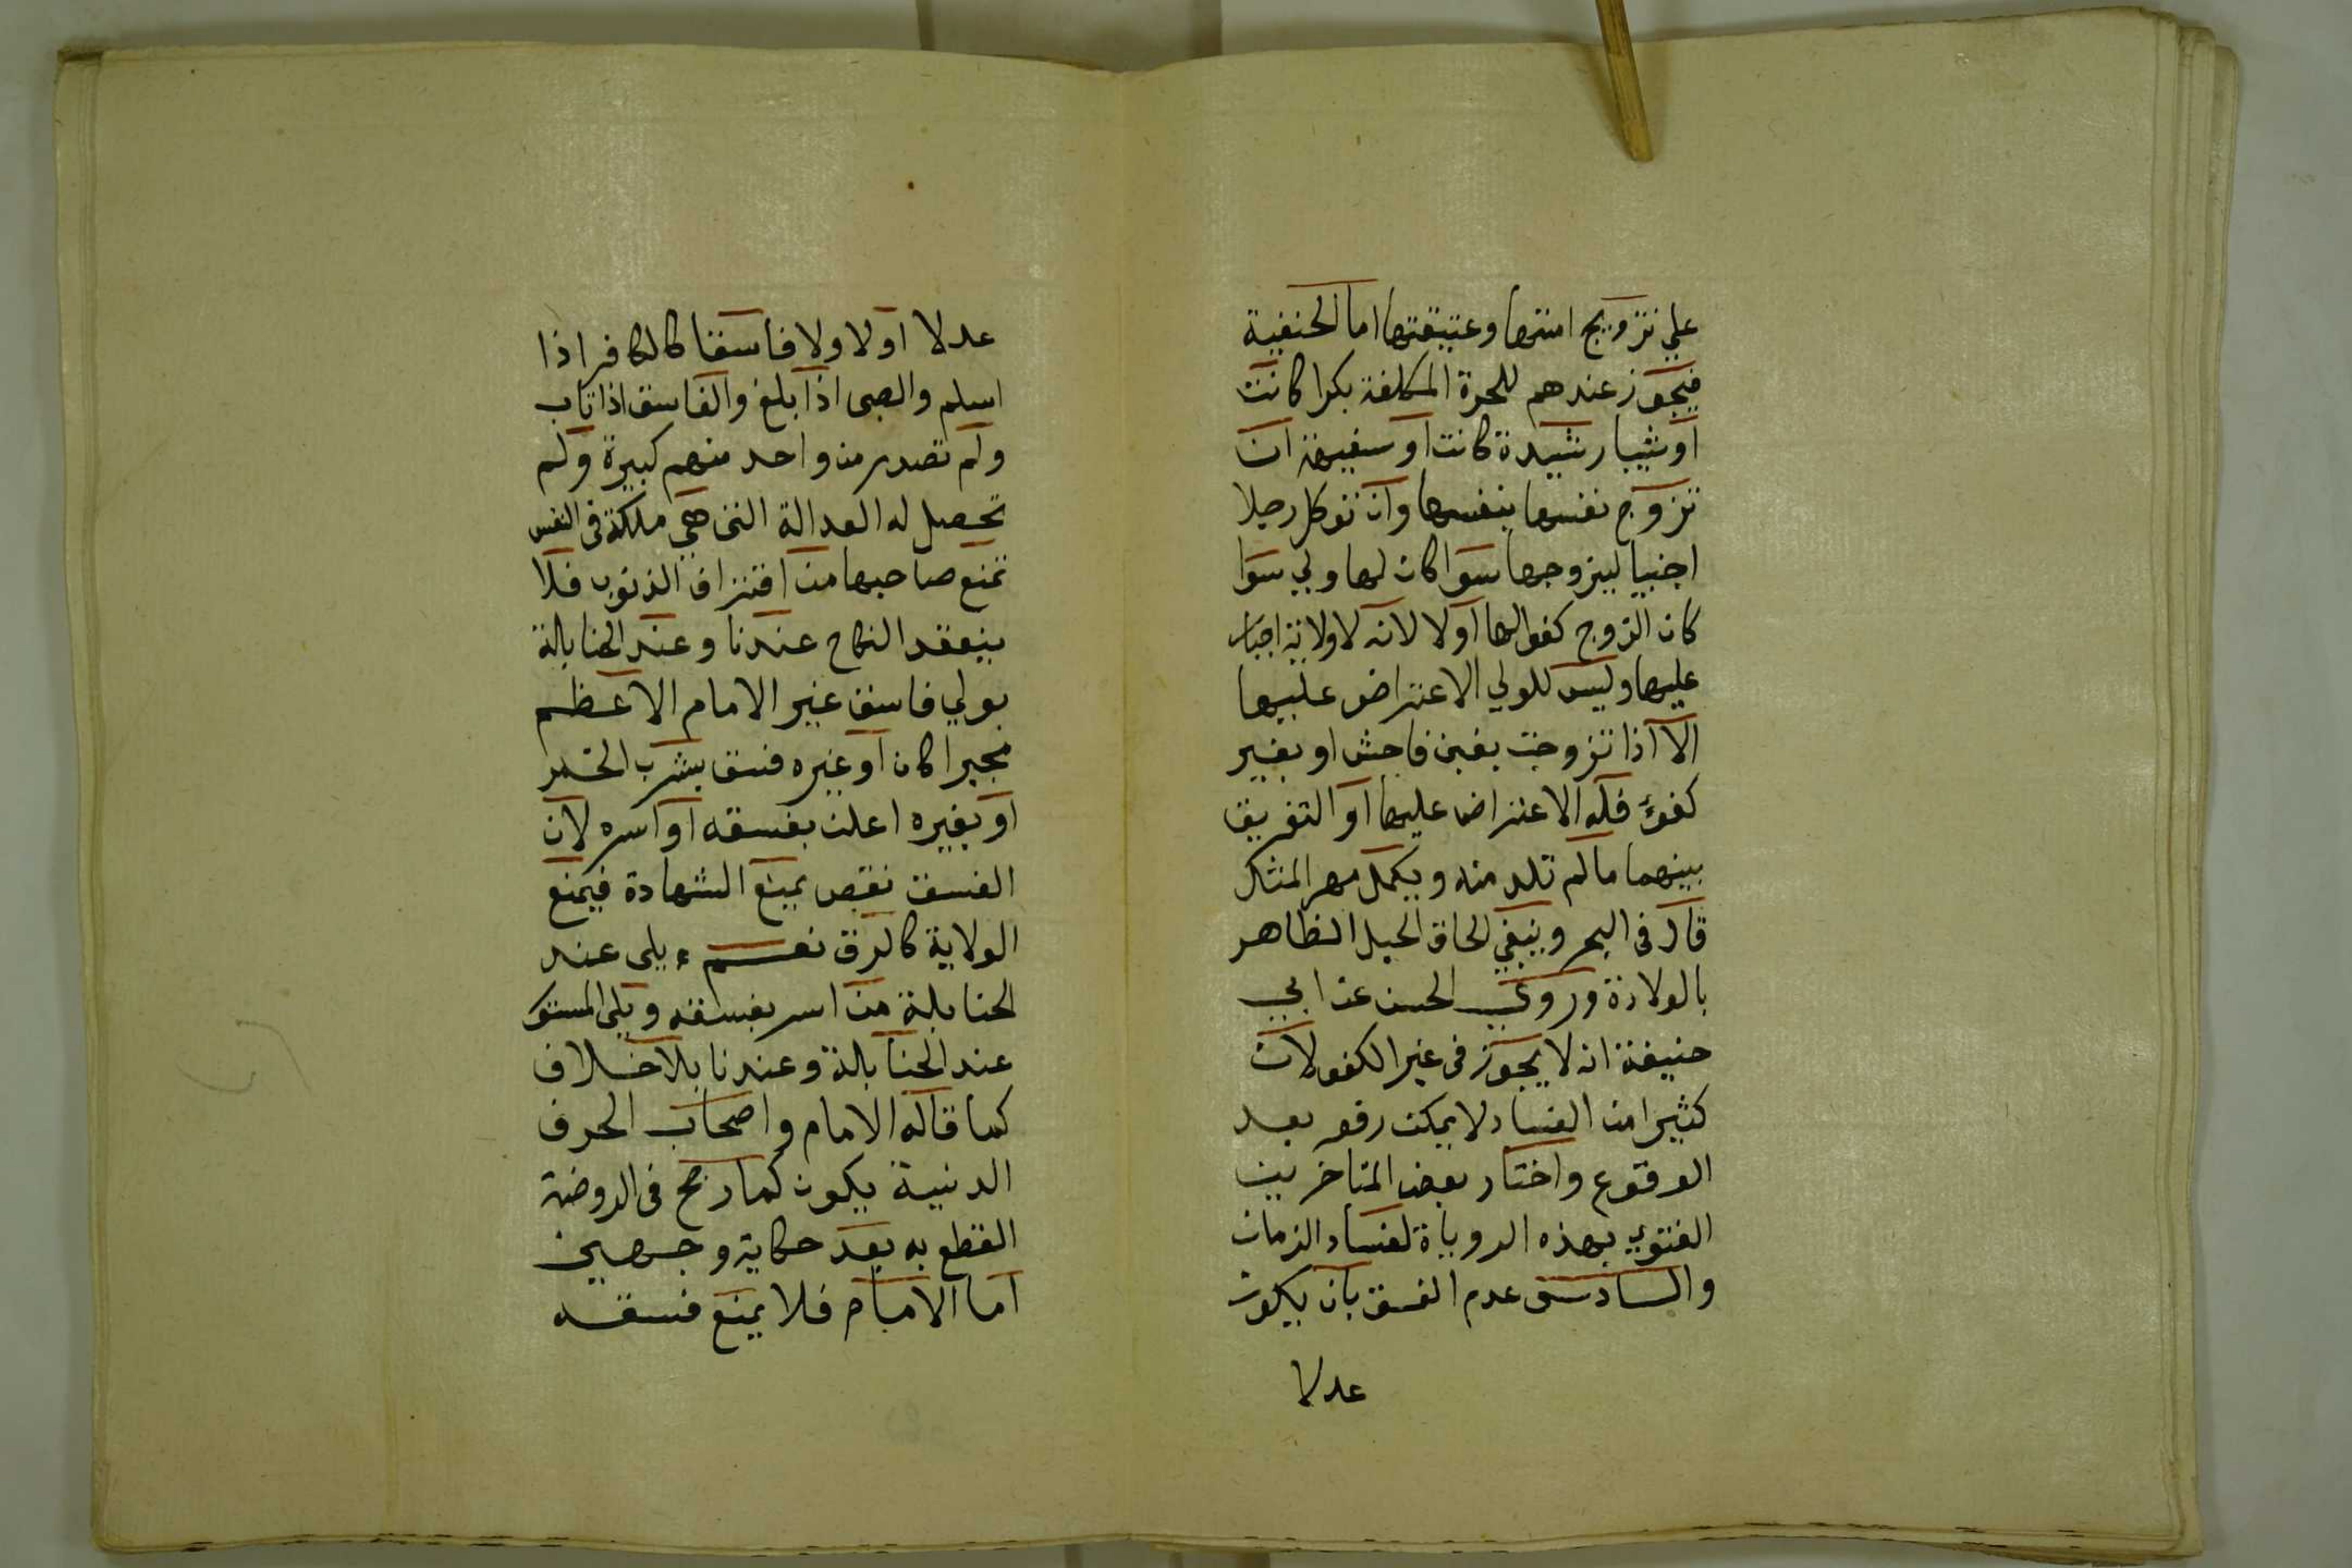 علي تزويج امتها وعتيقتها اما الحنفية
فيجوز عندهم للحرة المكلفة بكرا كانت
او ثيبا رشيدة كانت او سفيهة ان
تزوج نفسها بنفسها وان توكل رجلا
اجنبيا ليزوجها سوا كان لها ولي سوا
كان الزوج كفوا لها او لا لانه لا ولاية اجبار
عليها وليس للولي الاعتراض عليها
الا اذا تزوجت بغبن فاحش او بغير
كفؤ فله الاعتراض عليها او التفريق
بينهما ما لم تلد منه ويكمل مهر المثل
قال في البحر وينبغي لحاق الحبل الظاهر
بالولادة وروي الحسن عن ابي
حنيفة انه لا يجوز في غير الكفو لان
كثيرا من الفساد لا يمكن رفعه بعد
الوقوع واختار بعض المتاخرين
الفتوي بهذه الرواية لفساد الزمان
والسادس عدم الفسق بان يكون
عدلا
عدلا او لا ولا فاسقا كالكافر اذا
اسلم والصبي اذا بلغ والفاسق اذا تاب
ولم تصدر من واحد منهم كبيرة ولم
تحصل له العدالة التي هي ملكة في النفس
تمنع صاحبها من اقتراف الذنوب فلا
ينعقد النكاح عندنا وعند الحنابلة
بولي فاسق غير الامام الاعظم
مجبرا كان او غيره فسق بشرب الخمر
او بغيره اعلن بفسقه او اسره لان
الفسق نقص يمنع الشهادة فيمنع
الولاية كالرق نعم يلي عند
الحنابلة من اسر بفسقه ويلي المستور
عند الحنابلة وعندنا بلا خلاف
كما قاله الامام واصحاب الحرف
الدنية يكون كما رجح في الروضة
القطع به بعد حكاية وجهين
اما الامام فلا يمنع فسقه